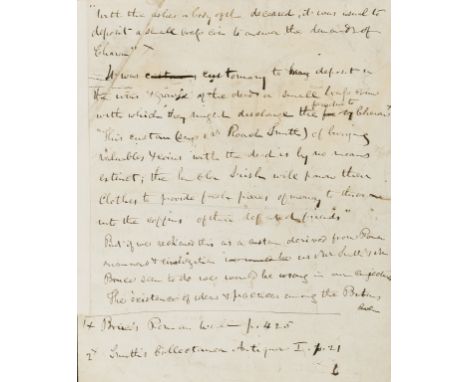 "With the ashes or body of the deceased, it was usual to
deposit a small brass coin to answer the demands of
Charon"
It was customary to deposit in
the urns & graves of the dead a small brass coin
with which they might discharge the Charon's
"This custom (says Mr Roach Smith) of burying
valuables & coins with the dead is by no means
extinct; the humbler Irish will pawn their
clothes to provide fresh pieces of money to throw
into the coffins of their departed friends"
But if we reckoned this as a custom derived from Roman
manners & civilization as Mr Smith & Mr
Bruce seem to do we would be wrong in our
The existence of ideas & practices among the Britons
1x Bruce's Roman Wall p. 425
2x Smith's Collectanea Antiqua I. p. 21